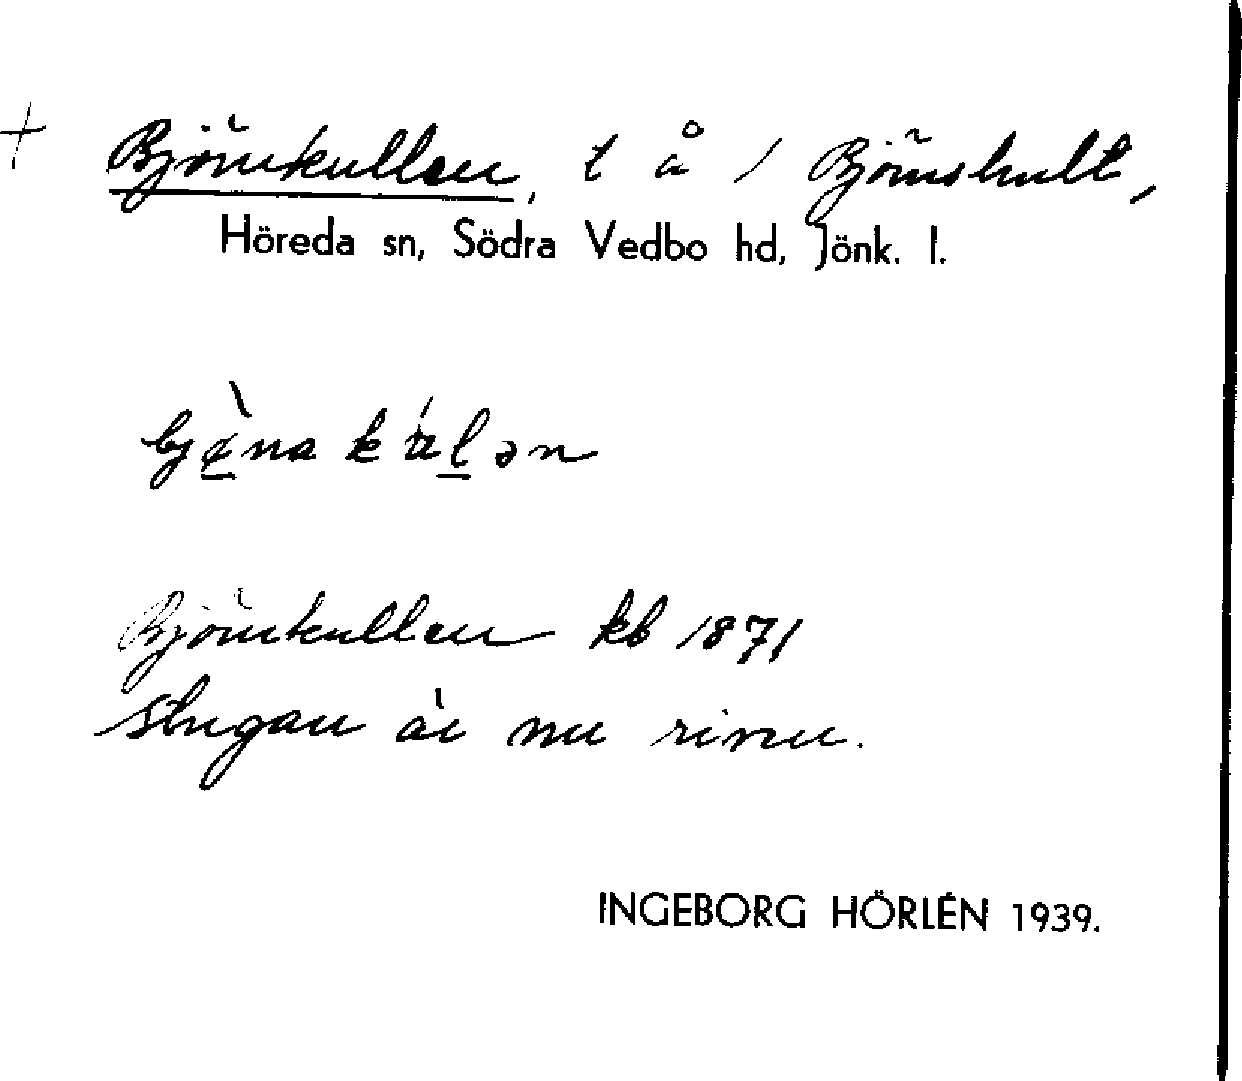 + Björnkullen, t å / Björnshult,
Höreda sn, Södra Vedbo hd, Jönk. l.
Björnkullen kb 1871
stugan är nu riven.
INGEBORG HÖRLÉN 1939.